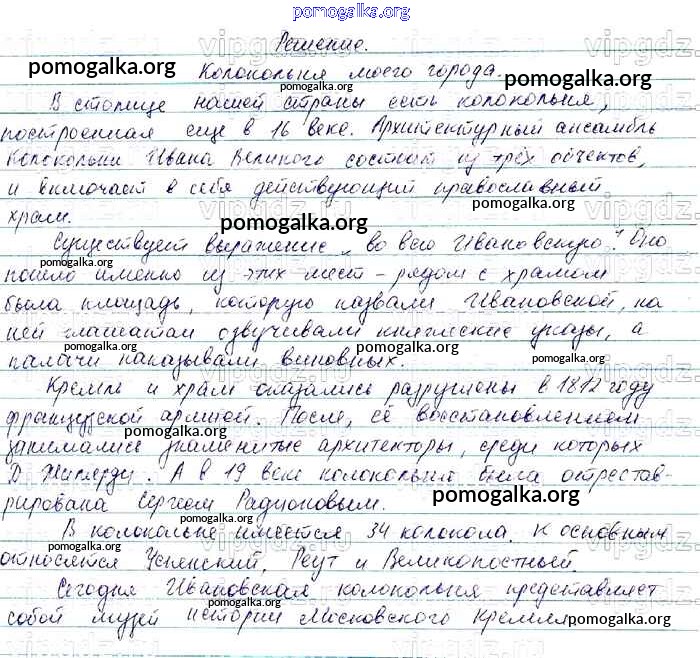 pomogalka.org
Решение.
Колокольня моего города.
В столице нашей страны есть колокольня,
построенная еще в 16 веке. Архитектурный ансамбль
колокольни Ивана Великого состоит из трёх объектов,
и включает в себя действующий православный
храм.
Существует выражение „во всю Ивановскую". Оно
пошло именно из этих мест - рядом с храмом
была площадь, которую назвали Ивановской, на
ней глашатаи озвучивали княжеские указы, а
палачи наказывали виновных.
Кремль и храм оказались разрушены в 1812 году
французской армией. После, её восстановлением
занимались знаменитые архитекторы, среди которых
Д. Жилярди. А в 19 веке колокольня была отрестав-
рирована Сергеем Радионовым.
В колокольне имеется 34 колокола. К основным
относятся Успенский, Реут и Великопостный.
Сегодня Ивановская колокольня представляет
собой музей истории Московского Кремля.